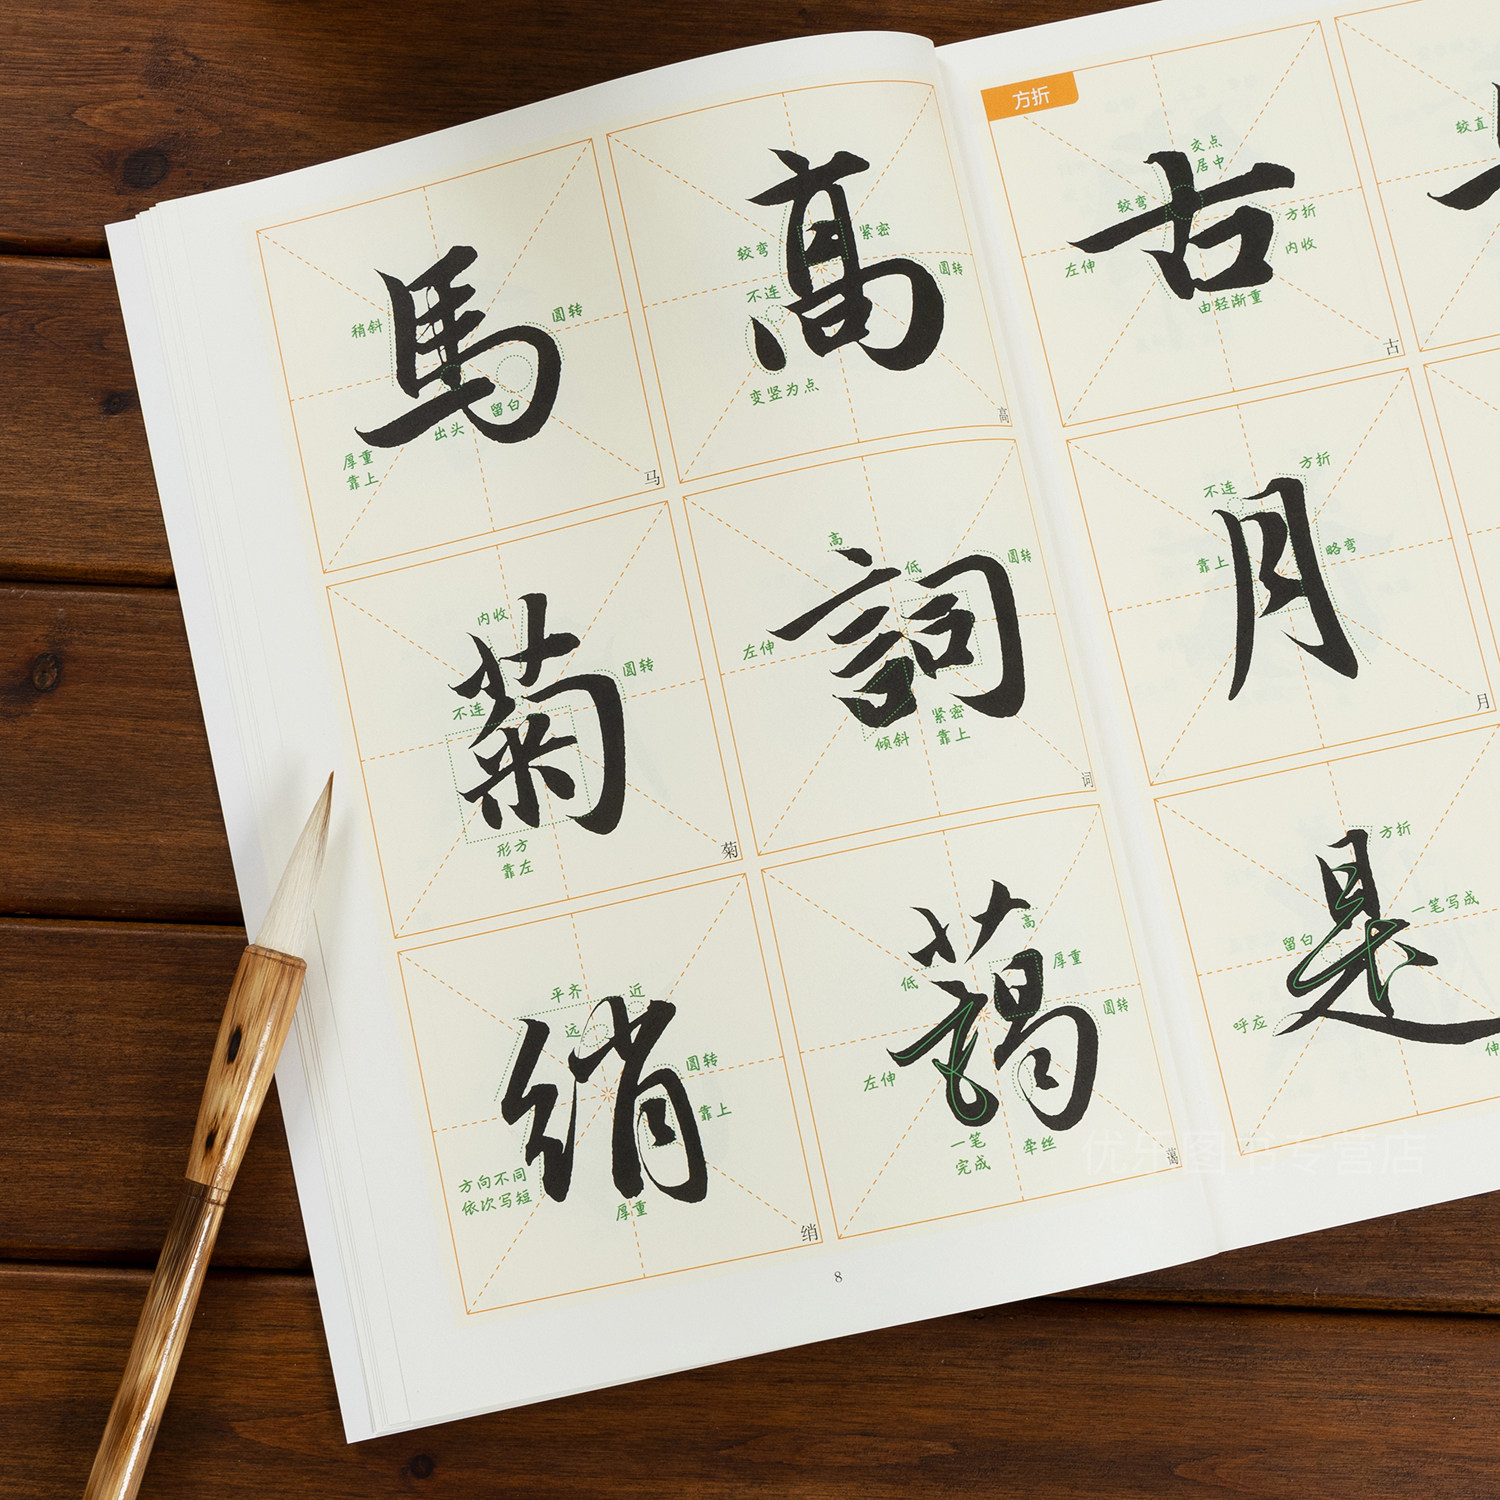 馬
稍斜
圆转
留白
出头
厚重
靠上
马
高
较弯
紧密
不连
圆转
变竖为点
高
菊
内收
圆转
不连
形方
靠左
菊
詞
高
低
圆转
左伸
倾斜
紧密
靠上
词
绡
平齐
近
远
圆转
靠上
方向不同
依次写短
厚重
绡
蔼
高
低
厚重
圆转
左伸
一笔
完成
牵丝
8
方折
古
交点
居中
较弯
方折
内收
左伸
由轻渐重
古
较直
月
方折
不连
靠上
略弯
月
是
方折
一笔写成
留白
呼应
伸
优乐图书专营店